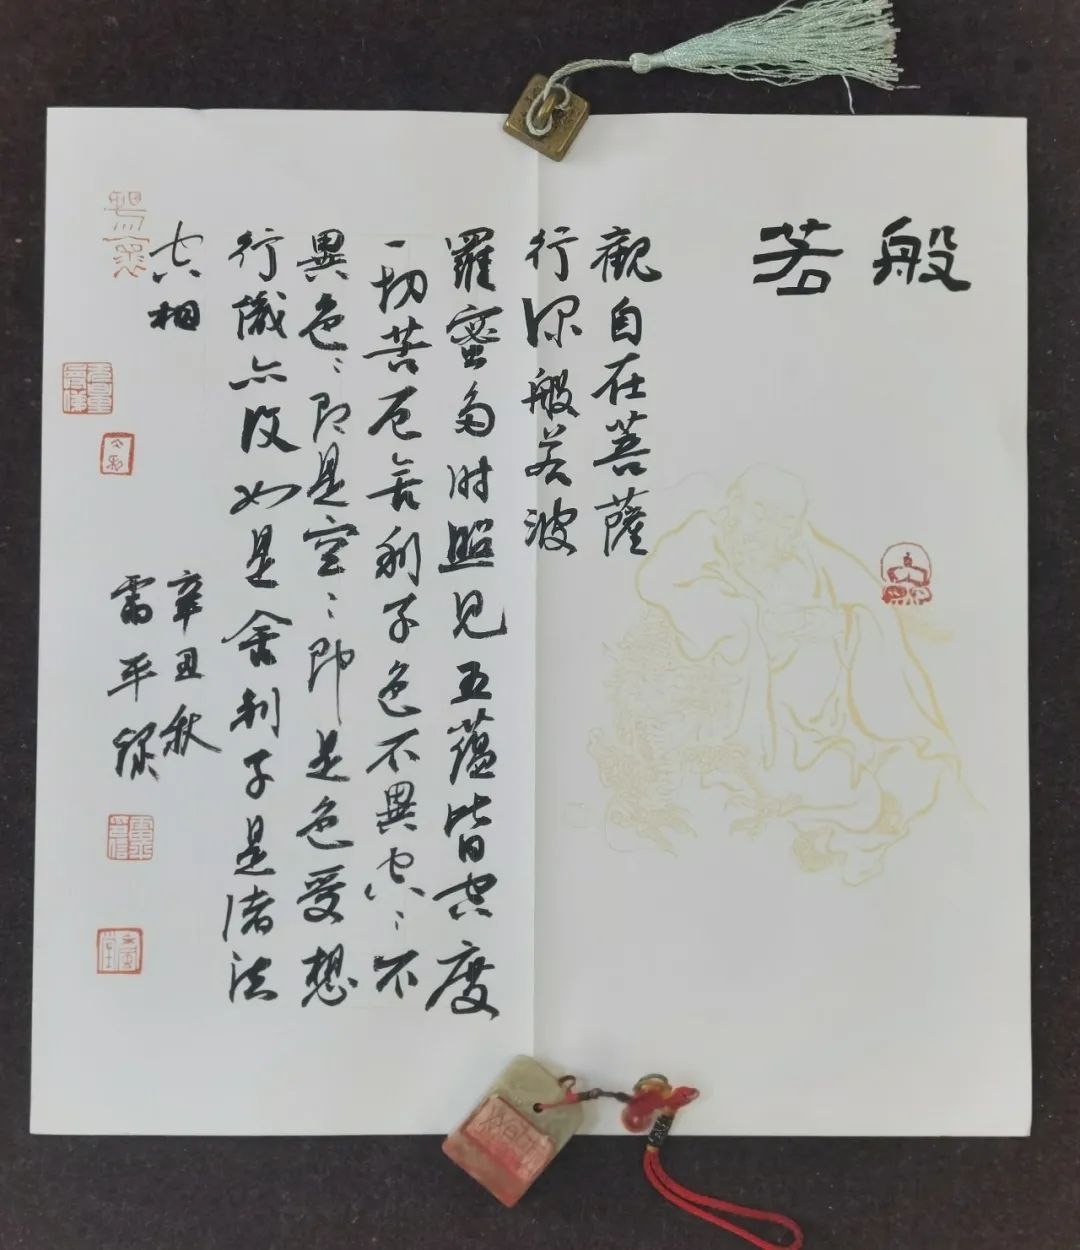 般若
觀自在菩薩
行深般若波
羅蜜多时照见五蘊皆空度
一切苦厄舍利子色不異空〻不
異色〻即是空〻即是色受想
行識亦復如是舍利子是诸法
空相
辛丑秋
雷平録